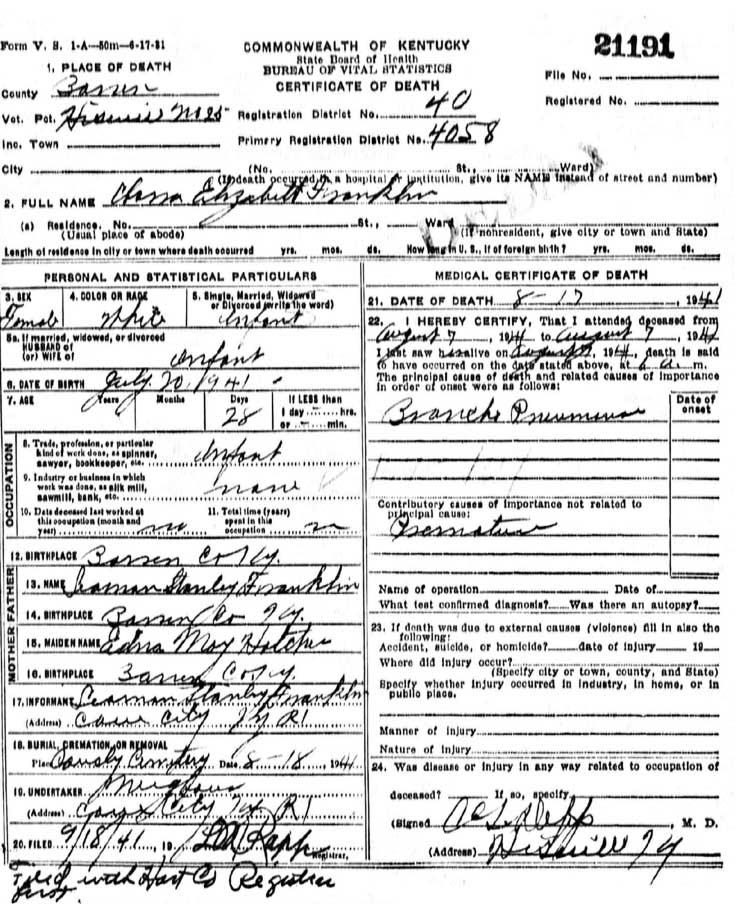 Form V. S. 1-A—50m—6-17-31
COMMONWEALTH OF KENTUCKY
State Board of Health
BUREAU OF VITAL STATISTICS
CERTIFICATE OF DEATH
21191
File No.
Registered No.
1. PLACE OF DEATH
County Barren
Vot. Pct.
Registration District No. 40
Inc. Town
Primary Registration District No. 4058
City (No. St., Ward)
(If death occurred in a hospital or institution, give its NAME instead of street and number)
2. FULL NAME Elizabeth Franklin
(a) Residence. No. St., Ward
(Usual place of abode) (If nonresident, give city or town and State)
Length of residence in city or town where death occurred yrs. mos. ds. How long in U. S., if of foreign birth? yrs. mos. ds.
PERSONAL AND STATISTICAL PARTICULARS
3. SEX 4. COLOR OR RACE 5. Single, Married, Widowed
or Divorced (write the word)
Female White Infant
5a. If married, widowed, or divorced
HUSBAND of
(or) WIFE of Infant
6. DATE OF BIRTH July 20 1941
7. AGE Years Months Days If LESS than
1 day hrs.
or min.
28
OCCUPATION
8. Trade, profession, or particular
kind of work done, as spinner,
sawyer, bookkeeper, etc. Infant
9. Industry or business in which
work was done, as silk mill,
sawmill, bank, etc. none
10. Date deceased last worked at
this occupation (month and
year) no
11. Total time (years)
spent in this
occupation
12. BIRTHPLACE Barren Co Ky.
MOTHER FATHER
13. NAME Stanley Franklin
14. BIRTHPLACE Barren Co Ky.
15. MAIDEN NAME Edna May
16. BIRTHPLACE Barren Co Ky.
17. INFORMANT Stanley Franklin
(Address) City Ky R1
18. BURIAL, CREMATION, OR REMOVAL
Place Cemetery Date 8-18, 1941
19. UNDERTAKER
(Address) City Ky R1
20. FILED 9/18/41, 19
Registrar.
Filed with Hart Co Register
first
MEDICAL CERTIFICATE OF DEATH
21. DATE OF DEATH 8-17, 1941
22. I HEREBY CERTIFY, That I attended deceased from
August 7, 1941 to August 7, 1941
I last saw h alive on August, 1941, death is said
to have occurred on the date stated above, at 6 a. m.
The principal cause of death and related causes of importance
in order of onset were as follows:
Date of
onset
Pneumonia
Contributory causes of importance not related to
principal cause:
Premature
Name of operation Date of
What test confirmed diagnosis? Was there an autopsy?
23. If death was due to external causes (violence) fill in also the
following:
Accident, suicide, or homicide? date of injury 19
Where did injury occur?
(Specify city or town, county, and State)
Specify whether injury occurred in industry, in home, or in
public place.
Manner of injury
Nature of injury
24. Was disease or injury in any way related to occupation of
deceased? If so, specify
(Signed) M. D.
(Address) Ky